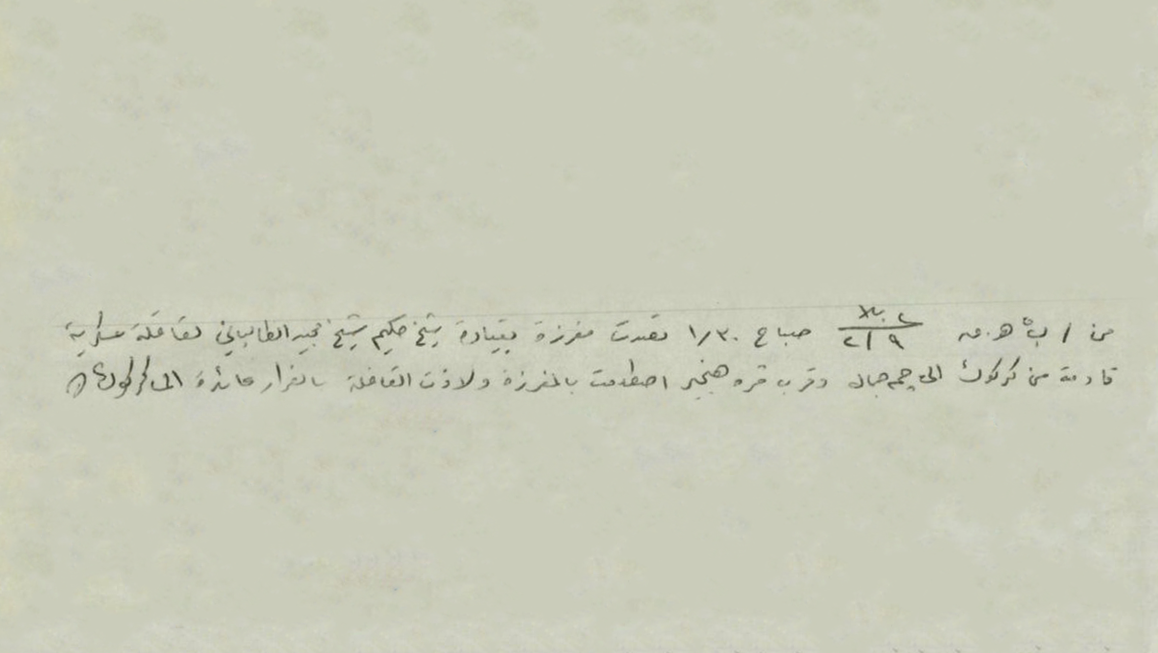 من / ب ش هـ. ق ٢ بلا ٢/٩ صباح ١/٣٠ تصدت مفرزة بقيادة شيخ حكيم شيخ مجيد الطالباني لقافلة عسكرية
قادمة من كركوك الى چمچمال وقرب قره هنجير اصطدمت بالمفرزة ولاذت القافلة بالفرار عائدة الى كركوك